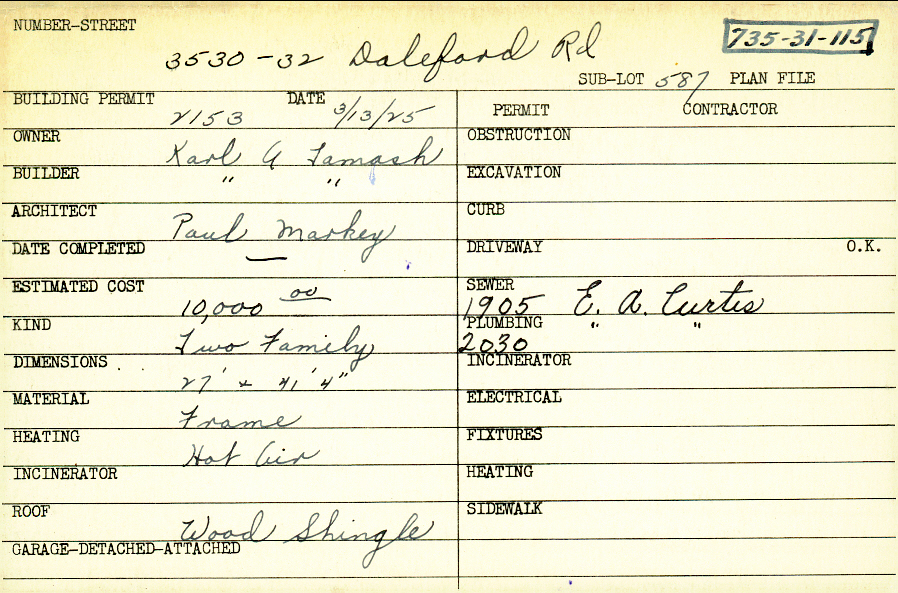 NUMBER-STREET
3530-32 Daleford Rd
735-31-115
SUB-LOT 587 PLAN FILE
BUILDING PERMIT 2153 DATE 3/13/25
OWNER Karl A Tamash
BUILDER " "
ARCHITECT Paul Markey
DATE COMPLETED —
ESTIMATED COST 10,000 00
KIND Two Family
DIMENSIONS 27' x 41' 4"
MATERIAL Frame
HEATING Hot Air
INCINERATOR
ROOF Wood Shingle
GARAGE-DETACHED-ATTACHED
PERMIT CONTRACTOR
OBSTRUCTION
EXCAVATION
CURB
DRIVEWAY O.K.
SEWER 1905 E. A. Curtis
PLUMBING 2030 " "
INCINERATOR
ELECTRICAL
FIXTURES
HEATING
SIDEWALK